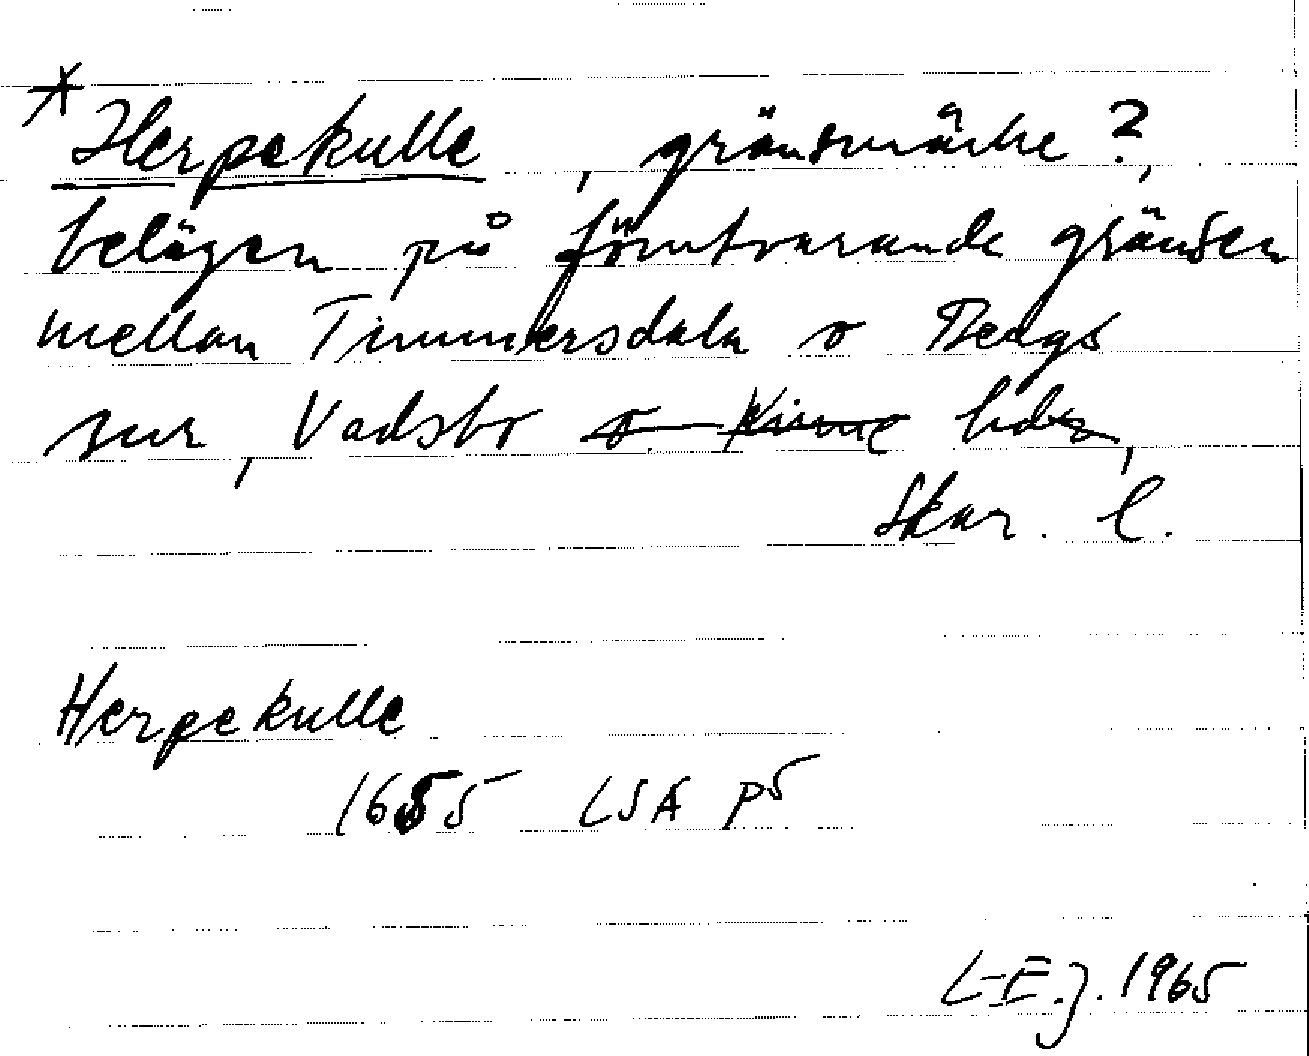 * Herpekulle, gränsmärke?,
belägen på förutvarande gränsen
mellan Timmersdala o Bergs
snr, Vadsbo o Kinne hdr,
Skar. l.
Herpekulle
1655 LSA P5
L-E.J. 1965